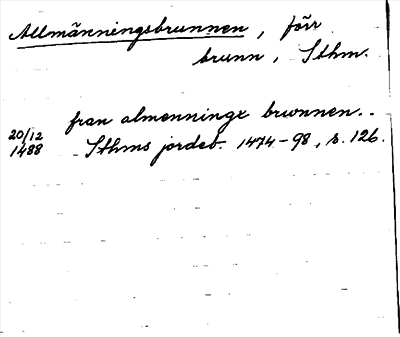 Allmänningsbrunnen, förr
brunn, Sthm.
fran almenninge brwnnen..
20/12
1488 Sthms jordeb. 1474-98, s. 126.